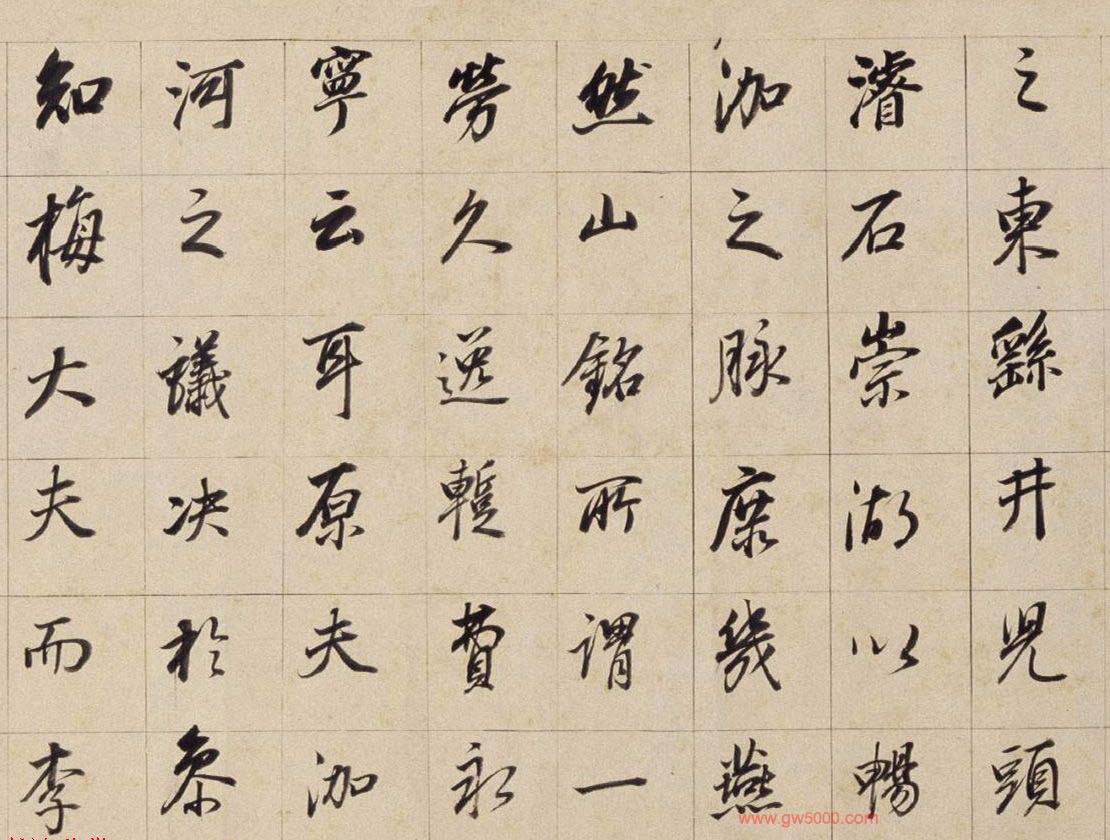 之東繇井兒頭
濬石崇湖以暢
泇之脉庶幾燕
然山銘所謂一
勞久逸暫費永
寧云耳原夫泇
河之議决於參
知梅大夫而李
www.gw5000.com